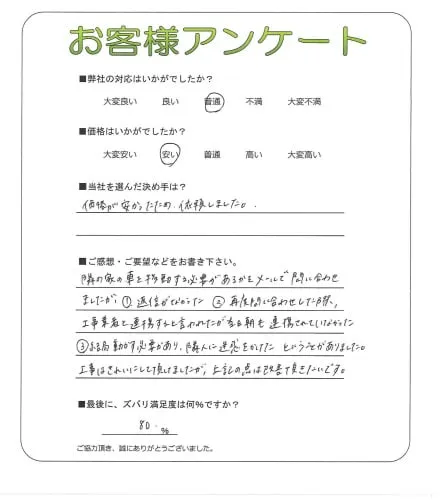 お客様アンケート
■弊社の対応はいかがでしたか？
大変良い 良い 普通 不満 大変不満
■価格はいかがでしたか？
大変安い 安い 普通 高い 大変高い
■当社を選んだ決め手は？
価格が安かったため、依頼しました。
■ご感想・ご要望などをお書き下さい。
隣の家の車を移動する必要があるかをメールで問い合わせ
ましたが、①返信がなかった ②再度問い合わせした際、
工事業者と連携すると言われたが当日朝も連携されていなかった
③結局動かす必要があり、隣人に迷惑をかけた ということがありました。
工事はきれいにして頂けましたが、上記の点は改善頂きたいです。
■最後に、ズバリ満足度は何％ですか？
80 %
ご協力頂き、誠にありがとうございました。